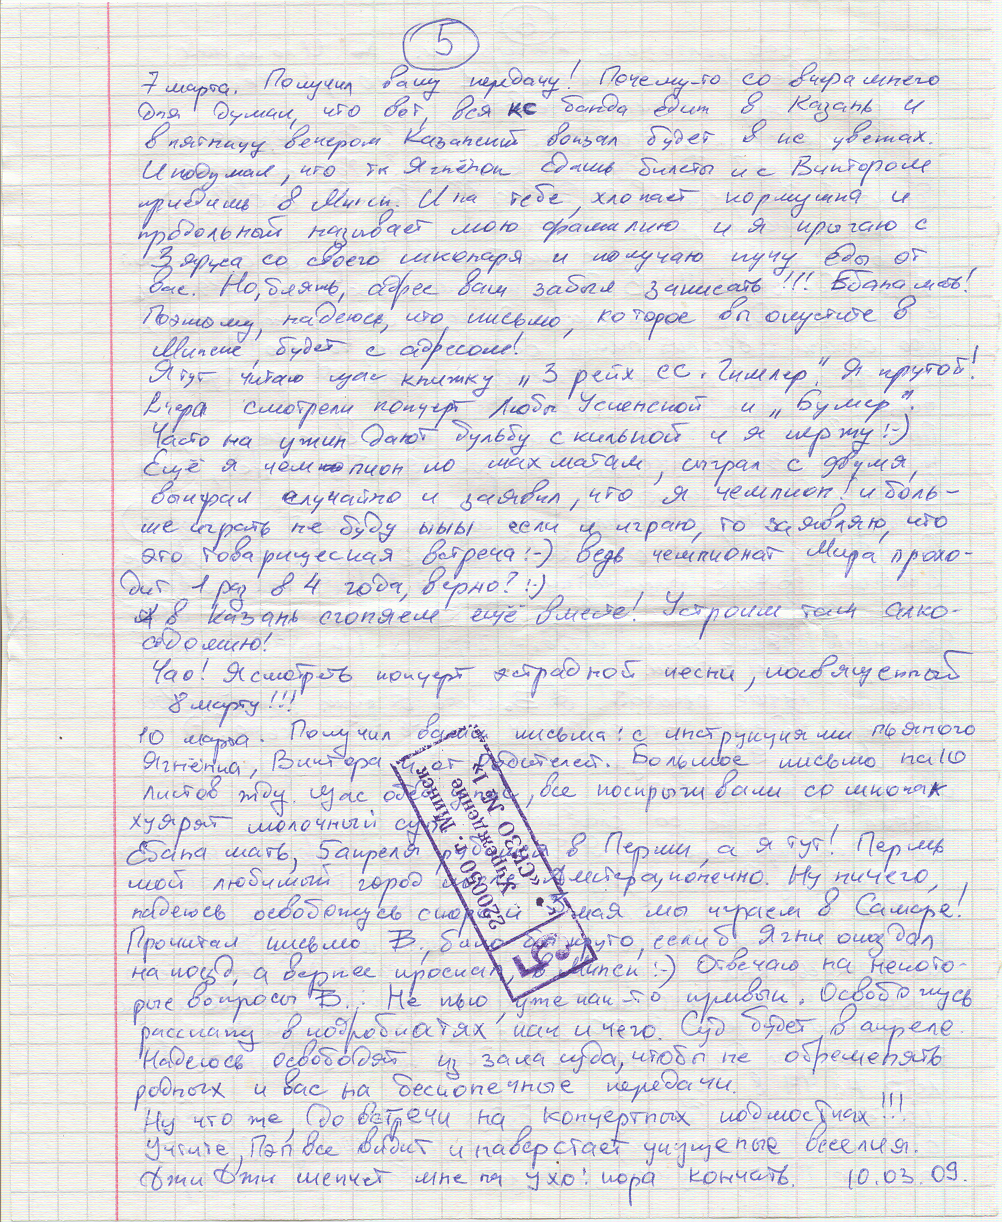 5
7 марта. Получил вашу передачу! Почему-то со вчерашнего
дня думал, что вот, вся кс банда едит в Казань и
в пятницу вечером Казанский вокзал будет в их цветах.
И подумал, что ты Ягнёнок сдашь билеты и с Виктором
приедишь в Минск. И на тебе, хлопает кормушка и
продольный называет мою фамилию и я прыгаю с
3 яруса со своего шконаря и получаю кучу еды от
вас. Но, блять, адрес ваш забыл записать!!! Ебана мать!
Поэтому, надеюсь, что письмо, которое вы опустите в
Минске, будет с адресом!
Я тут читаю щас книжку „3 рейх СС. Гимлер". Я крутой!
Вчера смотрели концерт Любы Успенской и „Бумер".
Часто на ужин дают бульбу с килькой и я иржу!:-)
Ещё я чемпион по шахматам, сыграл с двумя,
выиграл случайно и заявил, что я чемпион! и боль-
ше играть не буду ыыы если и играю, то заявляю, что
это товарищеская встреча!:-) ведь чемпионат Мира прохо-
дит 1 раз в 4 года, верно?!:-)
А в Казань сгоняем ещё вместе! Устроим там алко-
содомию!
Чао! Я смотреть концерт эстрадной песни, посвященный
8 марту!!!
10 марта. Получил ваши письма: с инструкциями пьяного
Ягнёнка, Виктора и от родителей. Большое письмо на 10
листов жду. Щас все поспрыгивали со шконак
хуярят молочный суп
Ебана мать, 5 апреля в Перми, а я тут! Пермь
мой любимый город конечно. Ну ничего,
надеюсь освобожусь скорей мая мы играем в Самаре!
Прочитал письмо В., было бы круто, если б Ягни опаздал
на поезд, а вернее проспал, в Минск!:-) Отвечаю на некото-
рые вопросы В... Не пью, уже как-то привык. Освобожусь
расскажу в подробностях как и чего. Суд будет в апреле.
Надеюсь освободят из зала суда, чтобы не обременять
родных и вас на бесконечные передачи.
Ну что же, до встречи на концертных подмостках!!!
Учтите, Пэп все видит и наверстает упущеные веселия.
Джи Джи шепчет мне на ухо: пора кончать. 10.03.09.
220050 г. Минск
Учреждение
«СИЗО № 1»